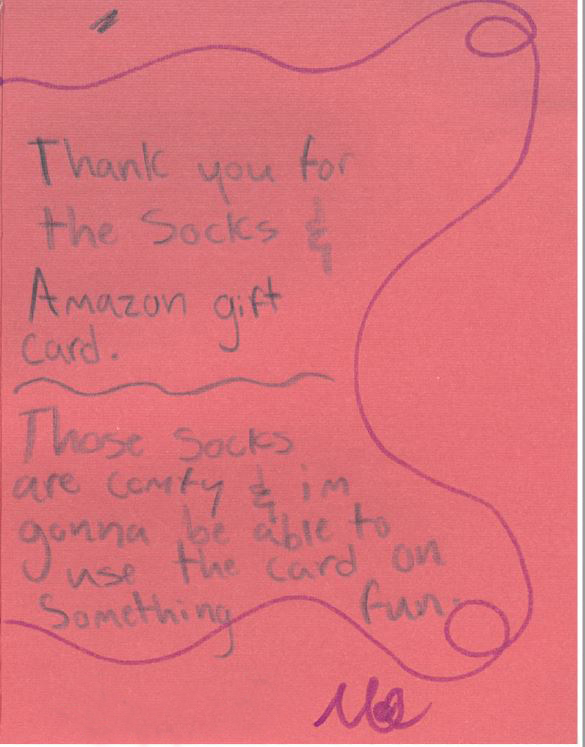 Thank you for
the Socks &
Amazon gift
card.
Those socks
are comfy & im
gonna be able to
use the card on
Something fun.